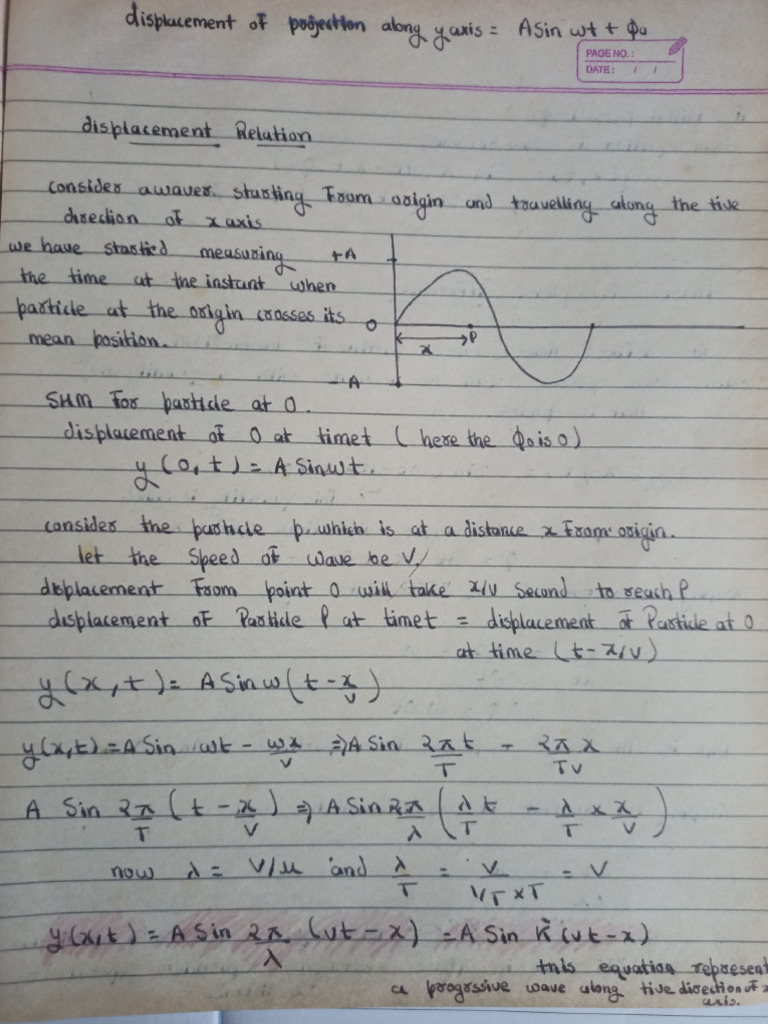 displacement of projection along y axis = A Sin wt + ϕ₀
PAGE NO.:
DATE: / /
displacement Relation
consider a waver. starting From origin and travelling along the +ive
direction of x axis
we have started measuring
the time at the instant when
particle at the origin crosses its
mean position.
+A
O
x
P
-A
SHM For particle at O.
displacement of O at time t ( here the ϕ₀ is 0)
y(0, t) = A Sin wt.
consider the particle p. which is at a distance x From origin.
let the Speed of wave be V,
displacement From point O will take x/v Second to reach P
displacement of Particle P at time t = displacement of Particle at O
at time (t - x/v)
y(x, t) = A Sin w(t - x/v)
y(x,t) = A Sin wt - wx/v ⇒ A Sin 2π t/T - 2π x/TV
A Sin 2π/T (t - x/V) ⇒ A Sin 2π/λ (λ/T t - λ/T × x/V)
now λ = V/u and λ/T = V/(1/T × T) = V
y(x,t) = A Sin 2π/λ (vt - x) = A Sin K (vt - x)
this equation represent
a progrssive wave along +ive direction of x
axis.